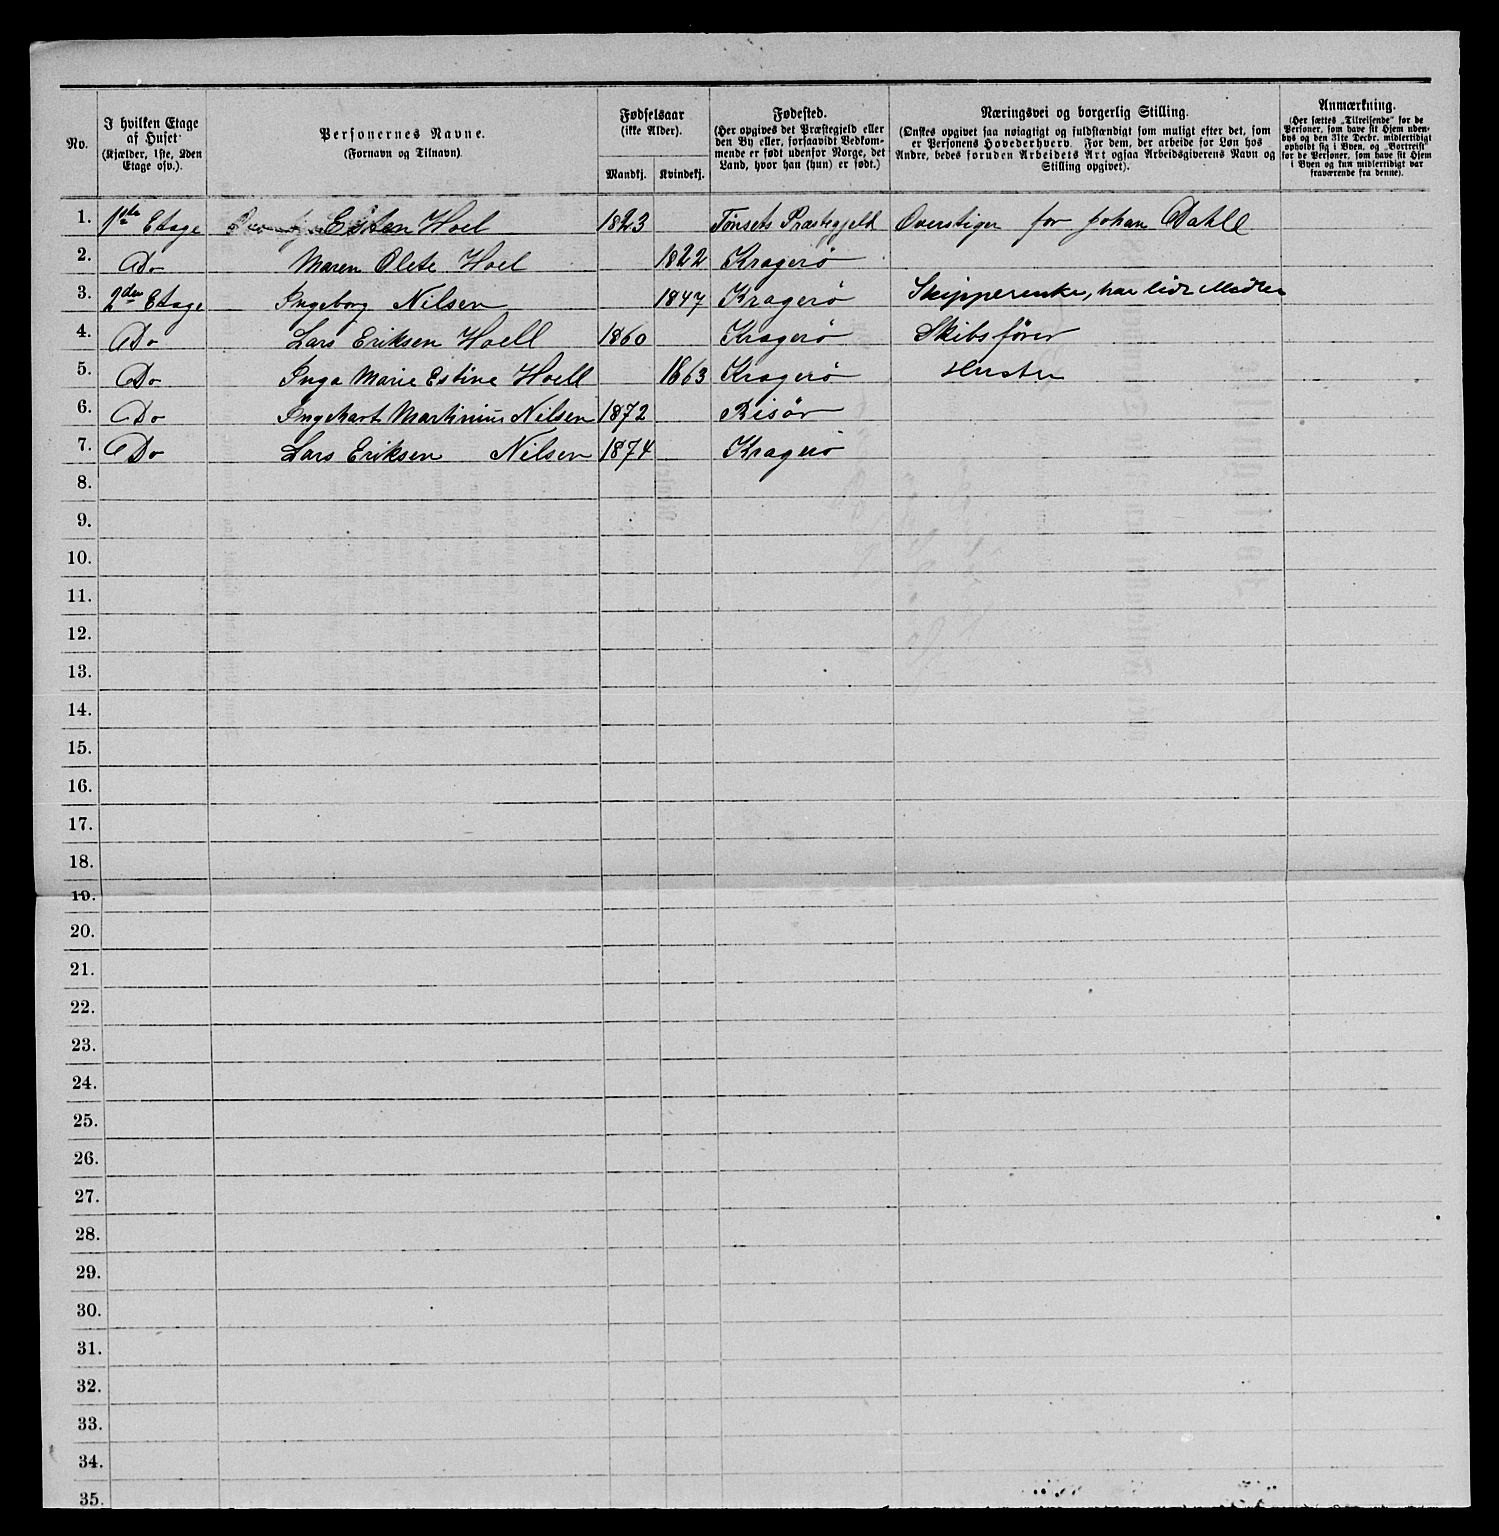 No.
I hvilken Etage
af Huset
(Kjælder, 1ste, 2den
Etage osv.).
Personernes Navne.
(Fornavn og Tilnavn)
Fødselsaar
(ikke Alder).
Mandkj. Kvindekj.
Fødested.
(Her opgives det Præstegjeld eller
den By eller, forsaavidt Vedkom-
mende er født udenfor Norge, det
Land, hvor han (hun) er født.)
Næringsvei og borgerlig Stilling.
(Ønskes opgivet saa nøiagtigt og fuldstændigt som muligt efter det, som
er Personens Hovederhverv. For dem, der arbeide for Løn hos
Andre, bedes foruden Arbeidets Art ogsaa Arbeidsgiverens Navn og
Stilling opgivet).
Anmærkning.
(Her sættes „Tilreisende“ for de
Personer, som have sit Hjem uden-
bys og den 31te Decbr. midlertidigt
opholdt sig i Byen, og „Bortreist“
for de Personer, som have sit Hjem
i Byen og kun midlertidigt var
fraværende fra denne).
1. 1ste Etage Esten Hoel 1823 Tønsets Præstegjeld Overstiger for Johan Dahll
2. Do Maren Olete Hoel 1822 Kragerø
3. 2den Etage Ingeborg Nilsen 1847 Kragerø Skipperenke, har lidt Midler
4. Do Lars Eriksen Hoell 1860 Kragerø Skibsfører
5. Do Inga Marie Estine Hoell 1863 Kragerø Hustru
6. Do Ingehart Martinius Nilsen 1872 Risør
7. Do Lars Eriksen Nilsen 1874 Kragerø
8.
9.
10.
11.
12.
13.
14.
15.
16.
17.
18.
19.
20.
21.
22.
23.
24.
25.
26.
27.
28.
29.
30.
31.
32.
33.
34.
35.